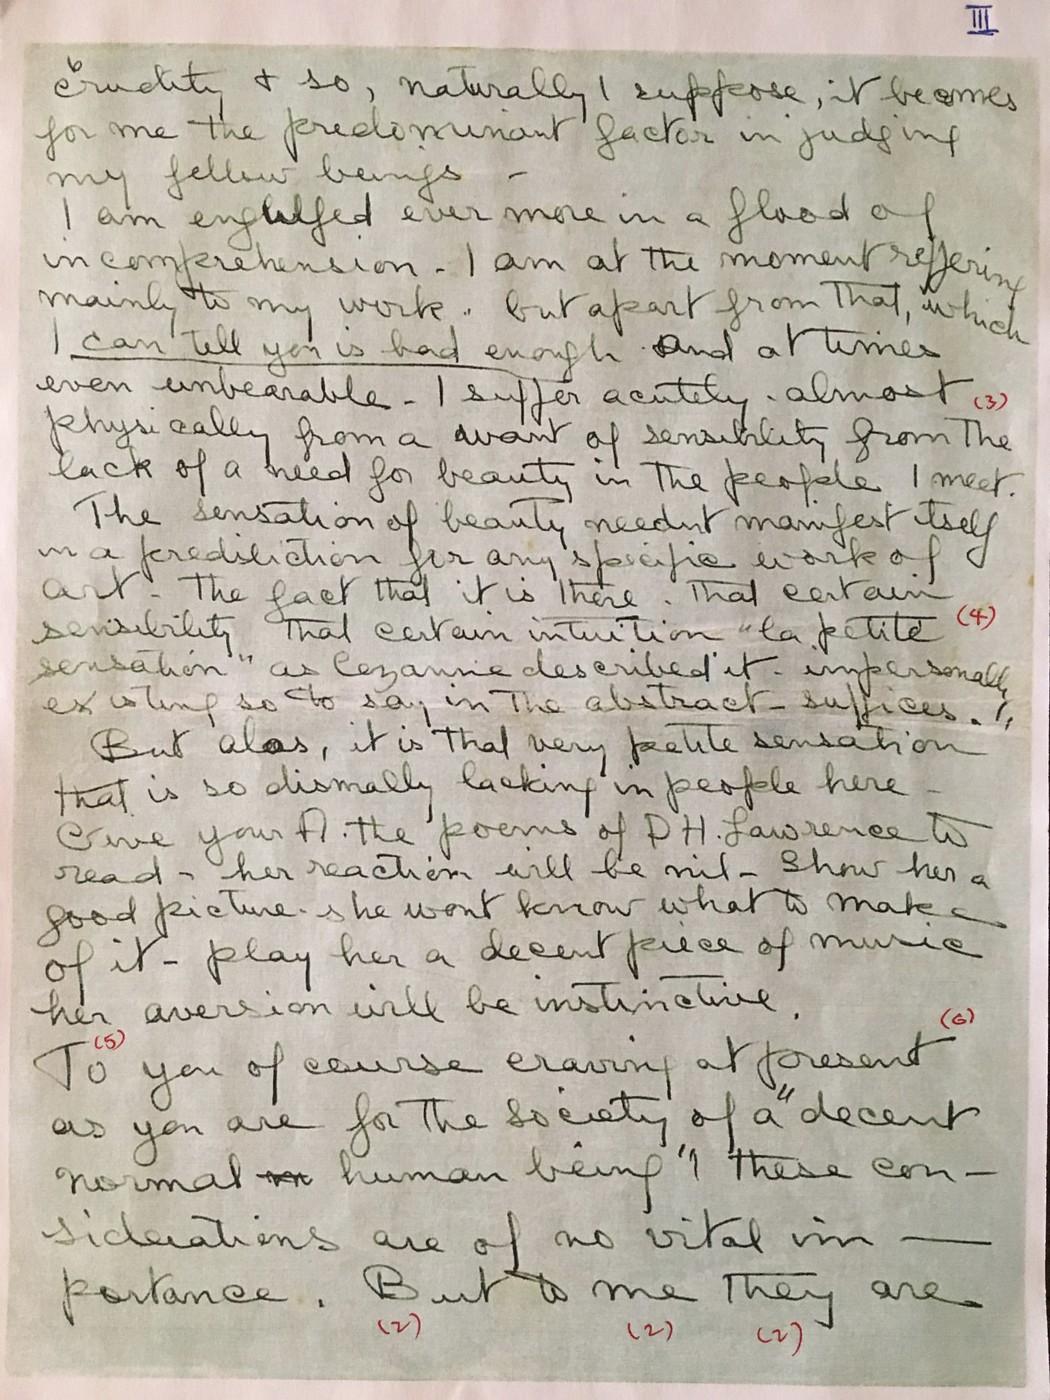 III
crudity & so, naturally I suppose, it becomes
for me the predominant factor in judging
my fellow beings -
I am engulfed ever more in a flood of
incomprehension - I am at the moment reffering
mainly to my work. but apart from that, which
I can tell you is bad enough. And at times
even unbearable - I suffer acutely. almost (3)
physically from a want of sensibility from the
lack of a need for beauty in the people I meet.
The sensation of beauty neednt manifest itself
in a prediliction for any specific work of
art - the fact that it is there. that certain
sensibility that certain intuition "la petite (4)
sensation" as Cezanne described it - impersonally
existing so to say in the abstract - suffices.
But alas, it is that very petite sensation
that is so dismally lacking in people here -
Give your A. the poems of D H. Lawrence to
read - her reaction will be nil - Show her a
good picture. she wont know what to make
of it - play her a decent piece of music
her aversion will be instinctive.
(5) (6)
To you of course craving at present
as you are for the society of a "decent
normal human being"! these con-
siderations are of no vital im-
portance. But to me they are
(2) (2) (2)